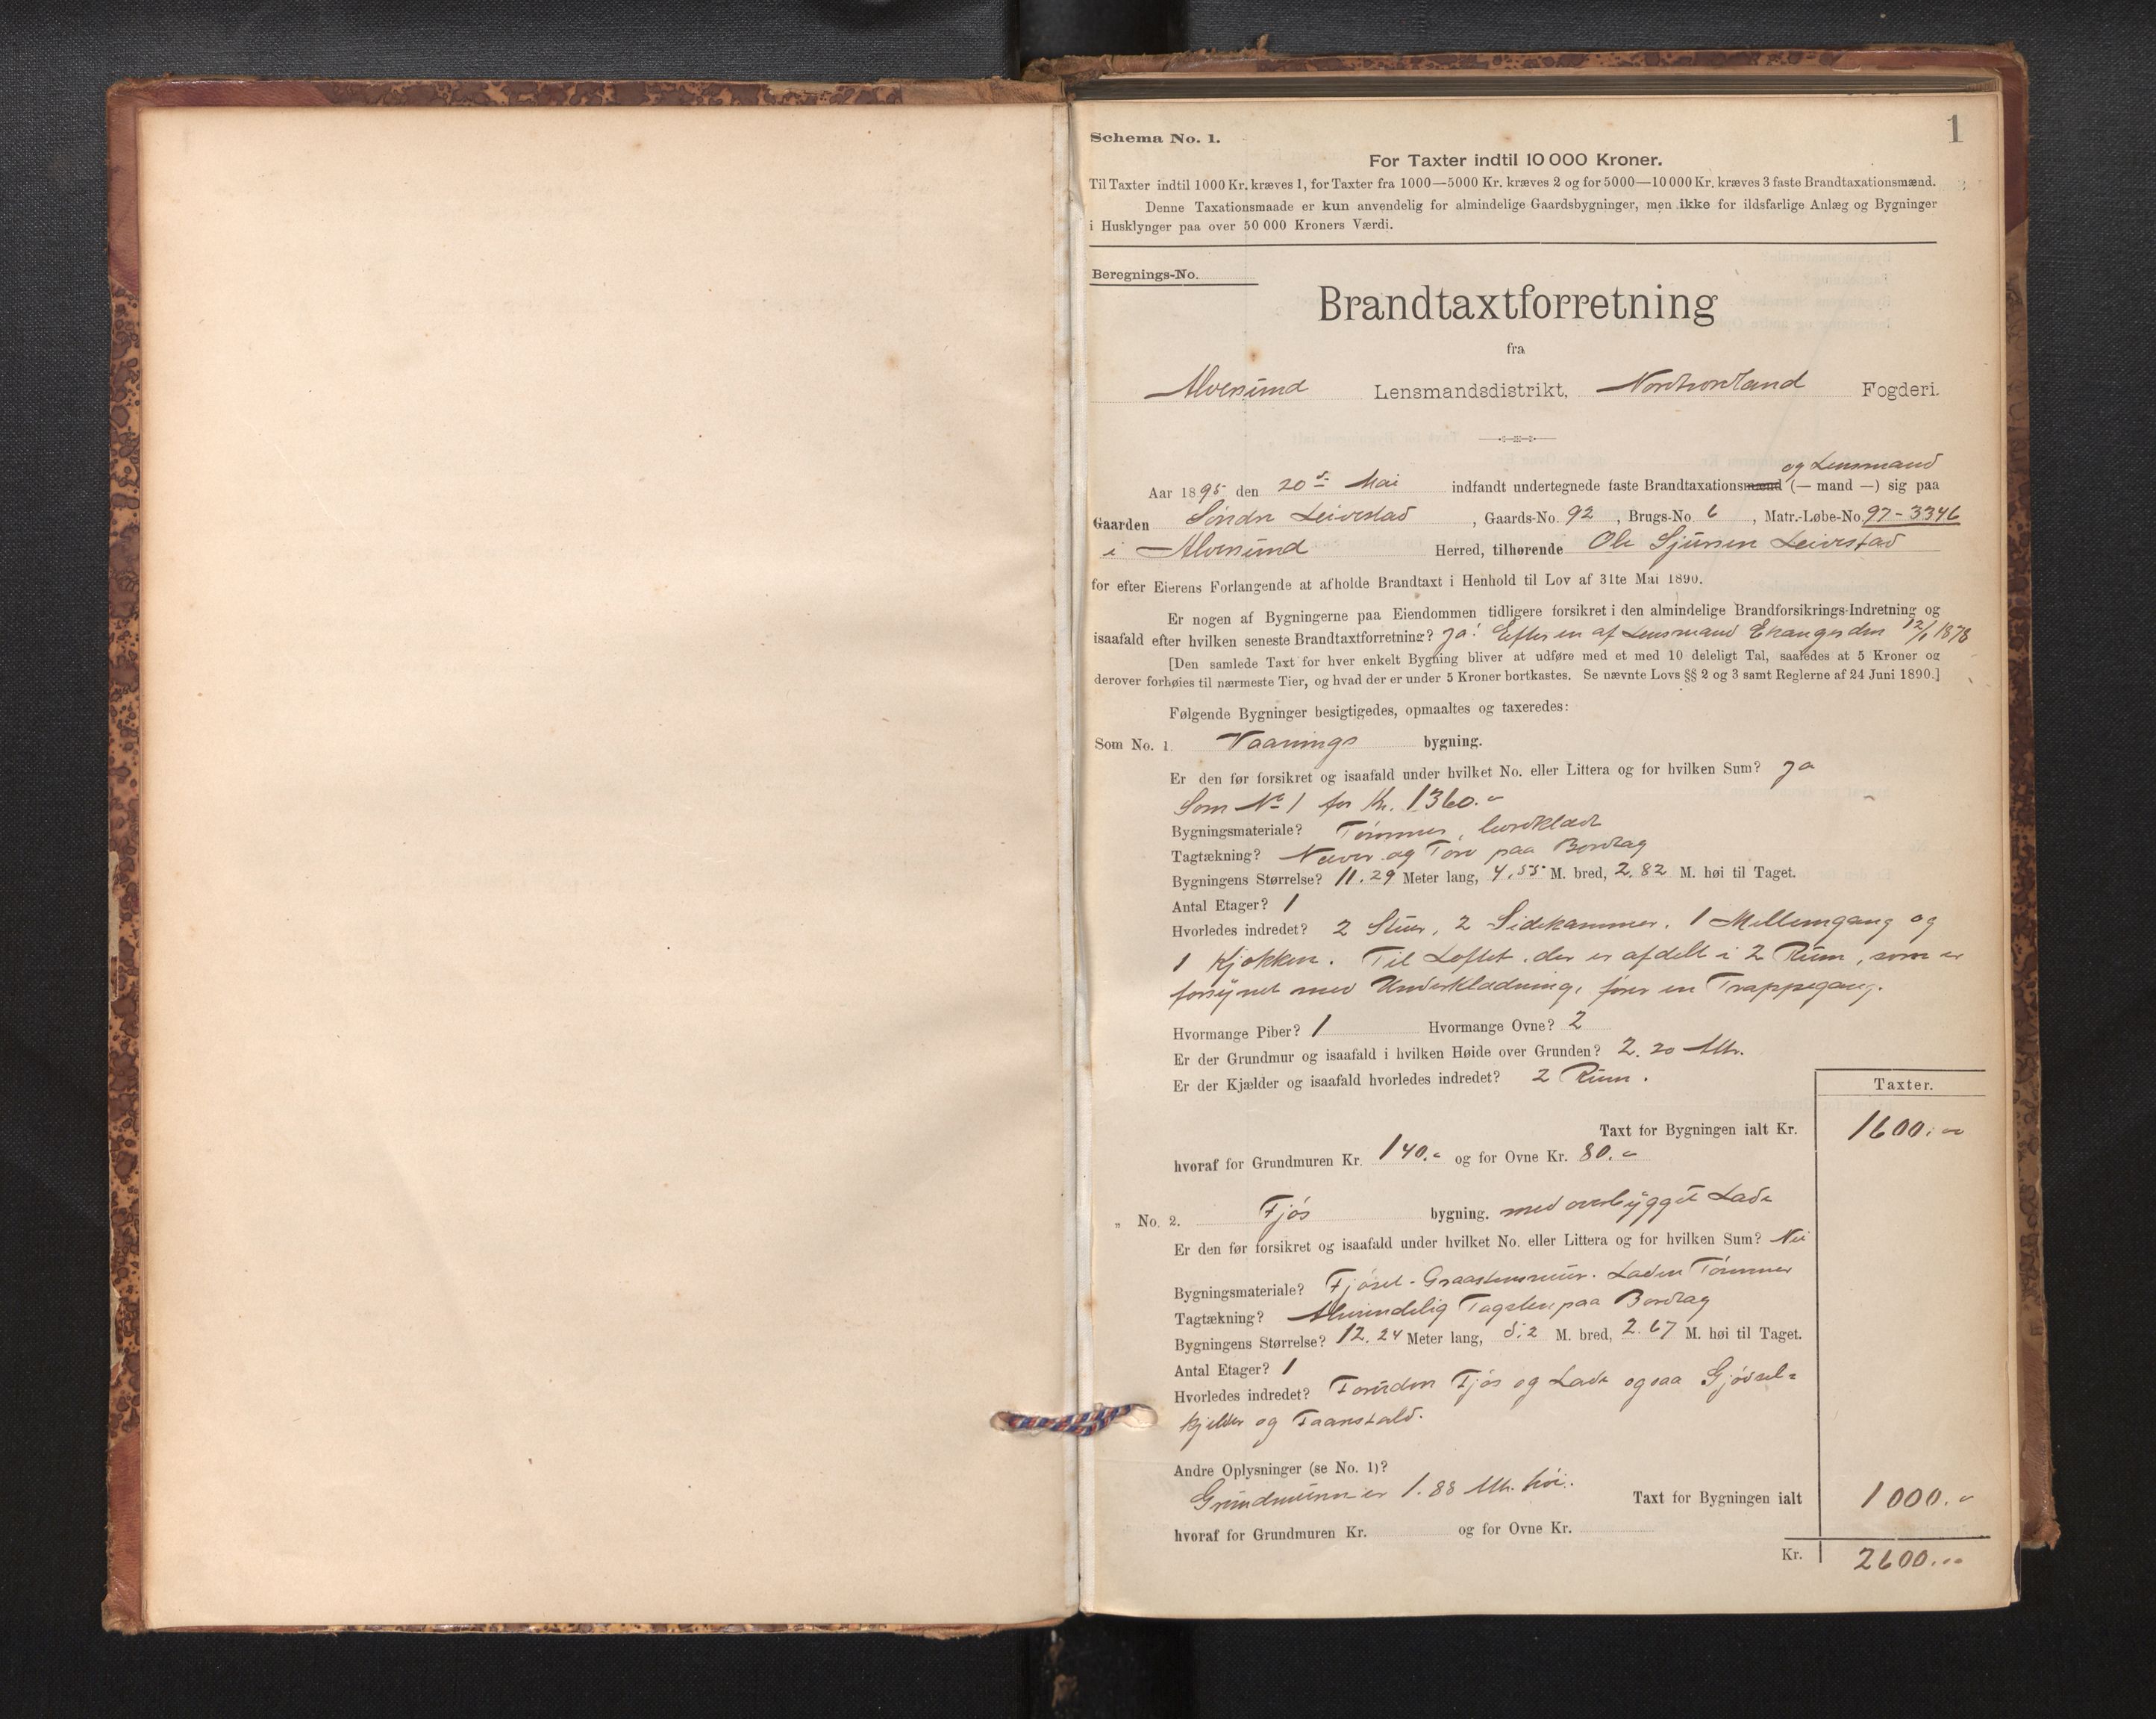 1
Schema No. 1.
For Taxter indtil 10 000 Kroner.
Til Taxter indtil 1000 Kr. kræves 1, for Taxter fra 1000—5000 Kr. kræves 2 og for 5000—10 000 Kr. kræves 3 faste Brandtaxationsmænd.
Denne Taxationsmaade er kun anvendelig for almindelige Gaardsbygninger, men ikke for ildsfarlige Anlæg og Bygninger
i Husklynger paa over 50 000 Kroners Værdi.
Beregnings-No.
Brandtaxtforretning
fra
Alversund Lensmandsdistrikt, Nordhordland Fogderi.
og Lensmand
Aar 1895 den 20de Mai indfandt undertegnede faste Brandtaxationsmænd (— mand —) sig paa
Gaarden Søndre Leivestad, Gaards-No. 92, Brugs-No. 6, Matr.-Løbe-No. 97-3346
i Alversund Herred, tilhørende Ole Sjursen Leivestad
for efter Eierens Forlangende at afholde Brandtaxt i Henhold til Lov af 31te Mai 1890.
Er nogen af Bygningerne paa Eiendommen tidligere forsikret i den almindelige Brandforsikrings-Indretning og
isaafald efter hvilken seneste Brandtaxtforretning? Ja! Efter en af Lensmand Ekanger den 12/1 1878
[Den samlede Taxt for hver enkelt Bygning bliver at udføre med et med 10 deleligt Tal, saaledes at 5 Kroner og
derover forhøies til nærmeste Tier, og hvad der er under 5 Kroner bortkastes. Se nævnte Lovs §§ 2 og 3 samt Reglerne af 24 Juni 1890.]
Følgende Bygninger besigtigedes, opmaaltes og taxeredes:
Som No. 1. Vaanings bygning.
Er den før forsikret og isaafald under hvilket No. eller Littera og for hvilken Sum? Ja
Som No 1 for Kr. 1360.-
Bygningsmateriale? Tømmer, bordklædt
Tagtækning? Næver og Torv paa Bordtag
Bygningens Størrelse? 11.29 Meter lang, 4.55 M. bred, 2.82 M. høi til Taget.
Antal Etager? 1
Hvorledes indredet? 2 Stuer, 2 Sidekammer. 1 Mellemgang og
1 Kjøkken. Til Loftet, der er afdelt i 2 Rum, som er
forsynet med Underklædning, fører en Trappegang.
Hvormange Piber? 1 Hvormange Ovne? 2
Er der Grundmur og isaafald i hvilken Høide over Grunden? 2.20 Mtr.
Er der Kjælder og isaafald hvorledes indredet? 2 Rum.
Taxter.
Taxt for Bygningen ialt Kr. 1600.-
hvoraf for Grundmuren Kr. 140.- og for Ovne Kr. 80.-
„ No. 2. Fjøs bygning. med overbygget Lade
Er den før forsikret og isaafald under hvilket No. eller Littera og for hvilken Sum? Nei
Bygningsmateriale? Fjøset - Graastensmur. Laden Tømmer
Tagtækning? Almindelig Tagsten paa Bordtag
Bygningens Størrelse? 12.24 Meter lang, M. bred, 2.67 M. høi til Taget.
Antal Etager? 1
Hvorledes indredet? Foruden Fjøs og Lade ogsaa Gjødsel-
kjelder og Faarestald.
Andre Oplysninger (se No. 1)?
Grundmuren er 1.88 Mtr. høi.
Taxt for Bygningen ialt 1000.-
hvoraf for Grundmuren Kr. og for Ovne Kr.
Kr. 2600.-